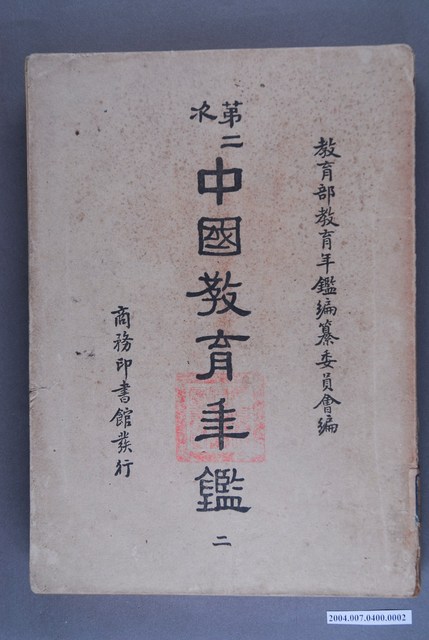 教育部教育年鑑編纂委員會編
第二次
中國教育年鑑
二
商務印書館發行
2004.007.0400.0002